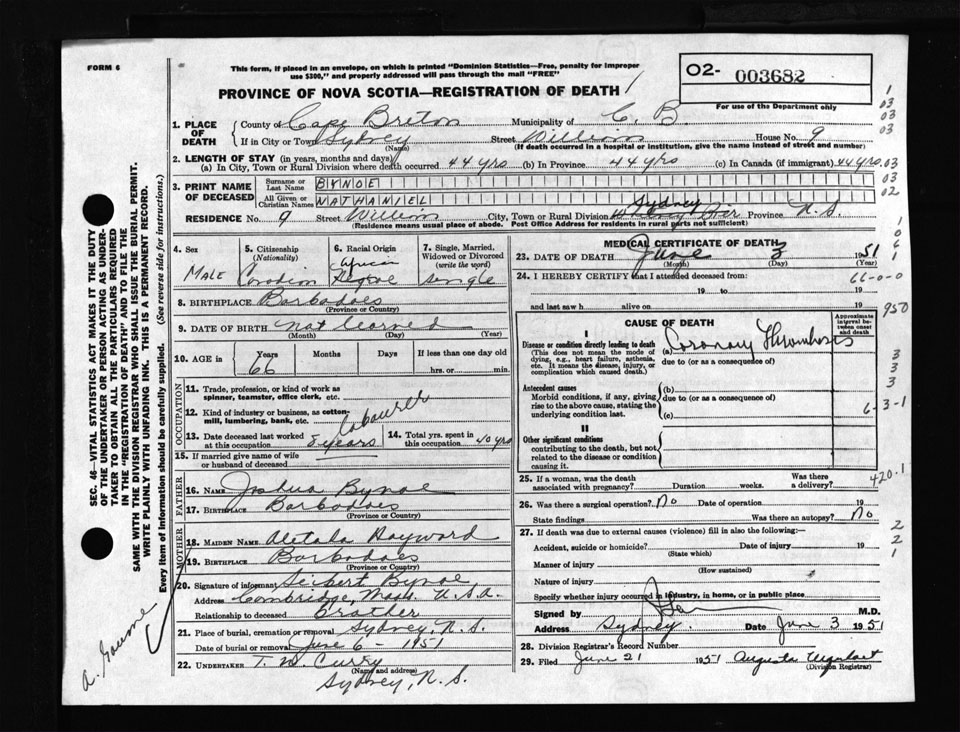 FORM 6
This form, if placed in an envelope, on which is printed "Dominion Statistics—Free, penalty for improper
use $300," and properly addressed will pass through the mail "FREE"
O2- 003682
PROVINCE OF NOVA SCOTIA—REGISTRATION OF DEATH
For use of the Department only
1. PLACE OF DEATH
County of Cape Breton Municipality of C. B.
If in City or Town Sydney (Name) Street William House No. 9
(If death occurred in a hospital or institution, give the name instead of street and number)
2. LENGTH OF STAY (in years, months and days)
(a) In City, Town or Rural Division where death occurred 44 yrs (b) In Province 44 yrs (c) In Canada (if immigrant) 44 yrs.
3. PRINT NAME OF DECEASED
Surname or Last Name BYNOE
All Given or Christian Names NATHANIEL
RESIDENCE No. 9 Street William City, Town or Rural Division Sydney Whitney Pier Province N.S.
(Residence means usual place of abode. Post Office Address for residents in rural parts not sufficient)
4. Sex Male
5. Citizenship (Nationality) Canadian
6. Racial Origin African Negroe
7. Single, Married, Widowed or Divorced (write the word) Single
8. BIRTHPLACE Barbadoes
(Province or Country)
9. DATE OF BIRTH not learned
(Month) (Day) (Year)
10. AGE in Years 66 Months Days If less than one day old
hrs. or min.
OCCUPATION
11. Trade, profession, or kind of work as spinner, teamster, office clerk, etc.
12. Kind of industry or business, as cotton-mill, lumbering, bank, etc. Labourer
13. Date deceased last worked at this occupation 8 years
14. Total yrs. spent in this occupation 40 yrs
15. If married give name of wife or husband of deceased
FATHER
16. NAME Joshua Bynoe
17. BIRTHPLACE Barbadoes
(Province or Country)
MOTHER
18. MAIDEN NAME Hayward
19. BIRTHPLACE Barbadoes
(Province or Country)
20. Signature of informant Seibert Bynoe
Address Cambridge, Mass. U.S.A.
Relationship to deceased Brother
21. Place of burial, cremation or removal Sydney, N.S.
Date of burial or removal June 6 - 1951
22. UNDERTAKER T. W. Curry
(Name and address)
Sydney, N.S.
MEDICAL CERTIFICATE OF DEATH
23. DATE OF DEATH June 3 1951
(Month) (Day) (Year)
24. I HEREBY CERTIFY that I attended deceased from:
66-0-0
19 to 19
and last saw h alive on 19
CAUSE OF DEATH
Approximate interval between onset and death
I
Disease or condition directly leading to death
(This does not mean the mode of dying, e.g., heart failure, asthenia, etc. It means the disease, injury, or complication which caused death.)
(a) Coronary Thrombosis
due to (or as a consequence of)
Antecedent causes
Morbid conditions, if any, giving rise to the above cause, stating the underlying condition last.
(b)
due to (or as a consequence of)
(c)
II
Other significant conditions
contributing to the death, but not related to the disease or condition causing it.
25. If a woman, was the death associated with pregnancy? Duration weeks. Was there a delivery?
26. Was there a surgical operation? No Date of operation 19
State findings Was there an autopsy? No
27. If death was due to external causes (violence) fill in also the following:—
Accident, suicide or homicide? Date of injury 19
(State which)
Manner of injury
(How sustained)
Nature of injury
Specify whether injury occurred in industry, in home, or in public place
Signed by M.D.
Address Sydney. Date June 3 1951
28. Division Registrar's Record Number
29. Filed June 21 1951 Augusta Urquhart
(Division Registrar)
1
03
03
03
03
03
02
1
0
6
1
950
3
3
3
6-3-1
420.1
2
2
1
SEC. 46—VITAL STATISTICS ACT MAKES IT THE DUTY
OF THE UNDERTAKER OR PERSON ACTING AS UNDER-
TAKER TO OBTAIN ALL THE PARTICULARS REQUIRED
IN THE "REGISTRATION OF DEATH" AND TO FILE THE
SAME WITH THE DIVISION REGISTRAR WHO SHALL ISSUE THE BURIAL PERMIT.
WRITE PLAINLY WITH UNFADING INK. THIS IS A PERMANENT RECORD.
Every item of information should be carefully supplied. (See reverse side for instructions.)